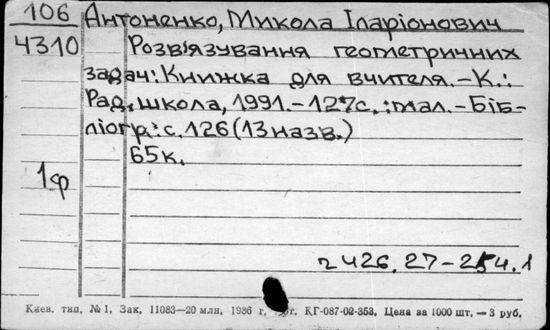 106 Антоненко, Микола Іларіонович
4310 Розв'язування геометричних
задач: Книжка для вчителя. – К.:
Рад. школа, 1991. – 127с.: іал. – Біб-
ліогр.: с. 126 (13 назв.)
65к.
1ф
ч 426. 27 – 254.1
Киев. тип. № 1. Зак. 11083—20 млн. 1986 г. КГ-087-02-353. Цена за 1000 шт. — 3 руб.